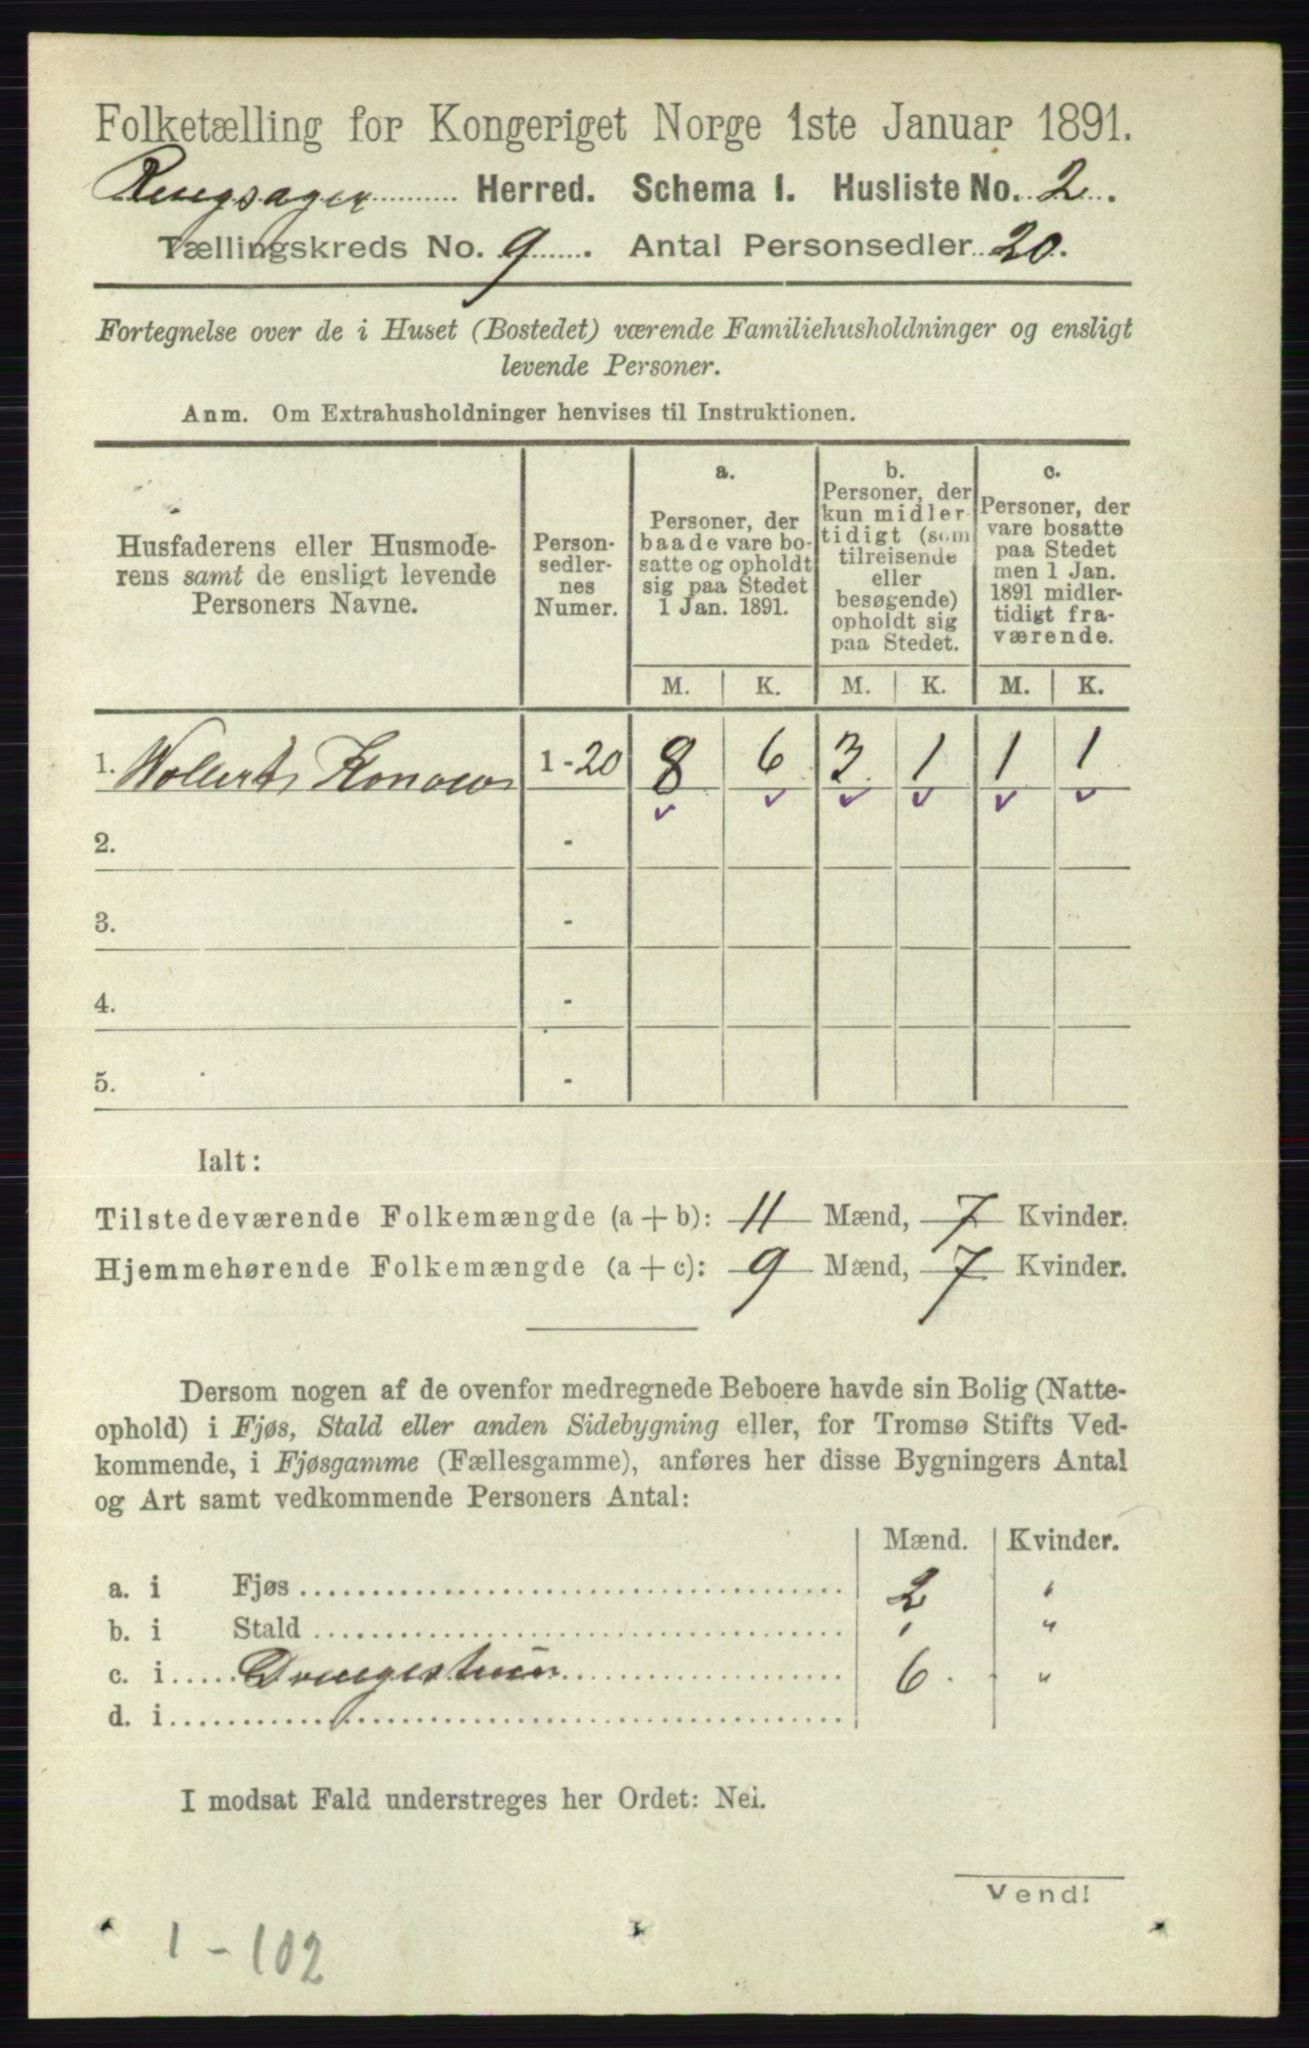 Folketælling for Kongeriget Norge 1ste Januar 1891.
Ringsager Herred. Schema I. Husliste No. 2.
Tællingskreds No. 9. Antal Personsedler 20.
Fortegnelse over de i Huset (Bostedet) værende Familiehusholdninger og ensligt
levende Personer.
Anm. Om Extrahusholdninger henvises til Instruktionen.
Husfaderens eller Husmode-
rens samt de ensligt levende
Personers Navne.
Person-
sedler-
nes
Numer.
a.
Personer, der
baade vare bo-
satte og opholdt
sig paa Stedet
1 Jan. 1891.
b.
Personer, der
kun midler-
tidigt (som
tilreisende
eller
besøgende)
opholdt sig
paa Stedet.
c.
Personer, der
vare bosatte
paa Stedet
men 1 Jan.
1891 midler-
tidigt fra-
værende.
M. K. M. K. M. K.
1. Wollert Konow 1-20 8 6 3 1 1 1
2. -
3. -
4. -
5. -
Ialt:
Tilstedeværende Folkemængde (a+b): 11 Mænd, 7 Kvinder.
Hjemmehørende Folkemængde (a+c): 9 Mænd, 7 Kvinder.
Dersom nogen af de ovenfor medregnede Beboere havde sin Bolig (Natte-
ophold) i Fjøs, Stald eller anden Sidebygning eller, for Tromsø Stifts Ved-
kommende, i Fjøsgamme (Fællesgamme), anføres her disse Bygningers Antal
og Art samt vedkommende Personers Antal:
Mænd. Kvinder.
a. i Fjøs 2 "
b. i Stald "
c. i Drengestuen 6 "
d. i
I modsat Fald understreges her Ordet: Nei.
Vend!
1-102